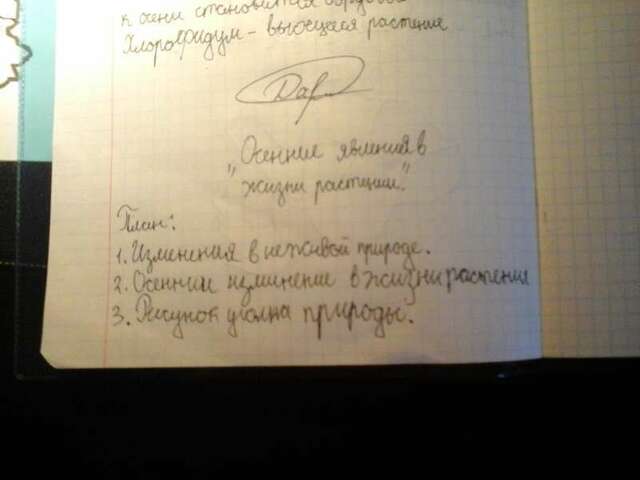 к осени становится
Хлорофидум - вьющееся растение
"Осенние явления в
жизни растении."
План:
1. Изменения в неживой природе.
2. Осеннии изминении в жизни растении
3. Рисунок уголка природы.